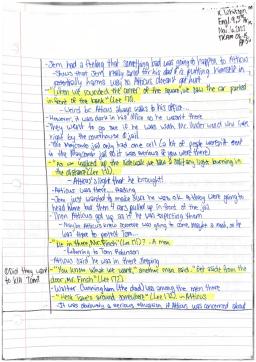 K. Whitson
- Jem had a feeling that something bad was going to happen to Atticus
- Shows that Jem really cared for his dad b/c putting himself in
potentially harms way so Atticus doesn't get hurt
- "When we rounded the corner of the square, we saw the car parked
in front of the bank" (Lee 17).
- Weird bc Atticus always walks to his office...
- However, it was dark in his office so he wasn't there
- They went to go see if he was with Mr. Underwood who lived
right by the courthouse & jail
- The Maycomb jail only had one cell (a lot of people weren't sent
to the Maycomb jail so it was serious if you were there)
- "As we walked up the sidewalk, we saw a solitary light burning in
the distance" (Lee 17).
- Atticus's light that he brought!
- Atticus was there... reading
- Jem just wanted to make sure he was ok & they were going to
head home but then 4 cars pulled up in front of the jail
- Then Atticus got up as if he was expecting them
- Maybe Atticus knew someone was going to come
there to protect Tom...
- "He in there, Mr. Finch" (Lee 17)? - A man
- Referring to Tom Robinson
- Atticus said he was in there sleeping
Did they want
to kill Tom?
- "You know what we want," another man said. "Get aside from the
door, Mr. Finch" (Lee 17).
- Walter Cunningham (the dad) was among the men there
- "Heck Tate's around somewhere" (Lee 17). - Atticus
- It was obviously a serious situation if Atticus was concerned about